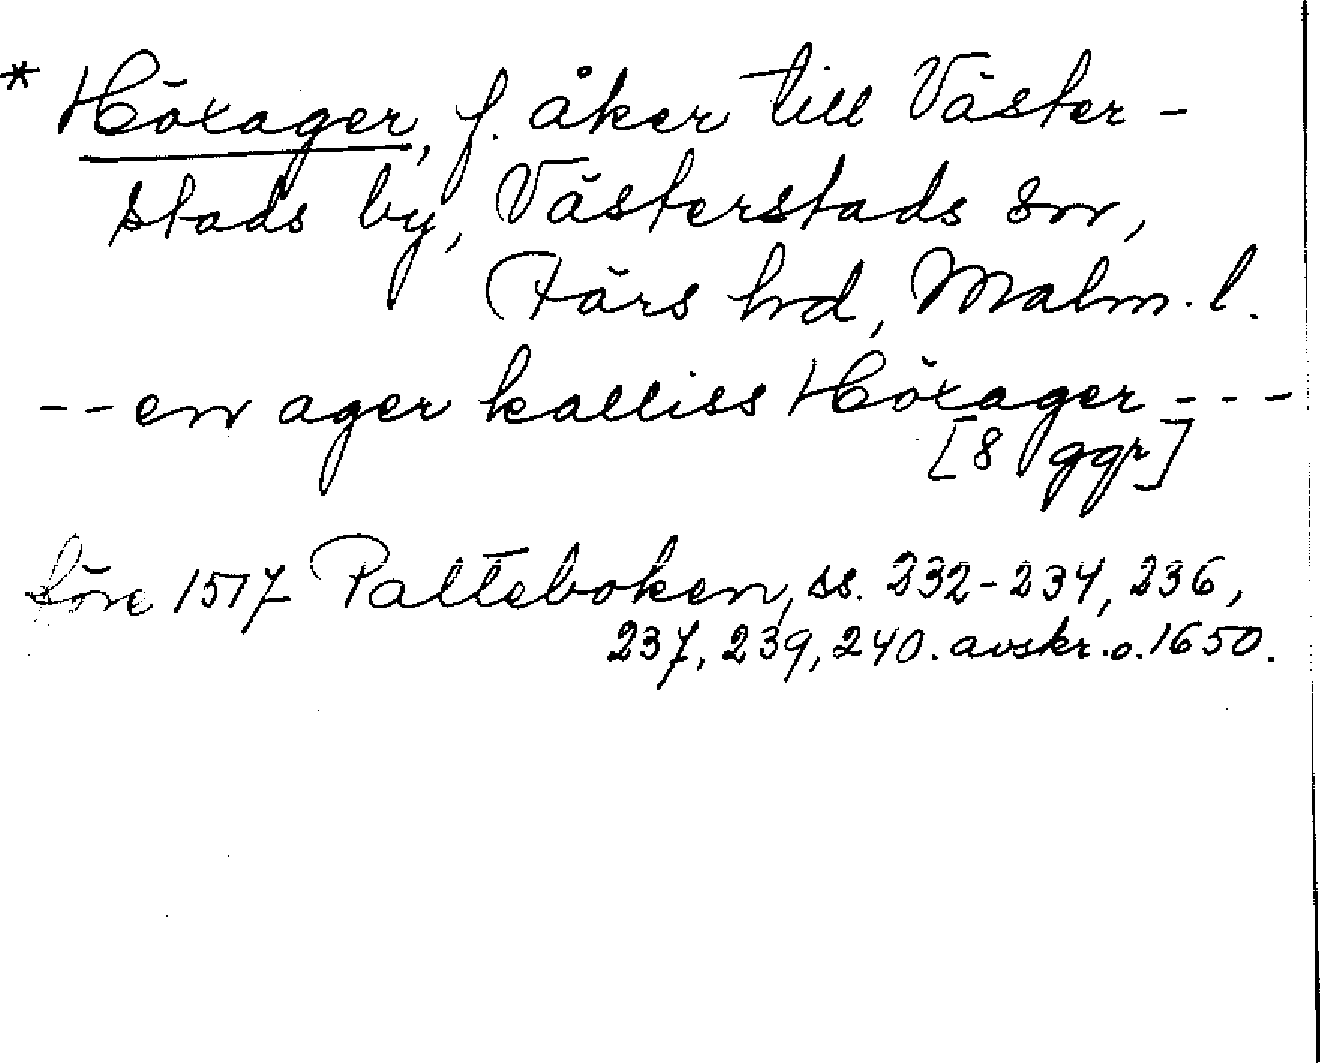 * Höxager, f. åker till Väster-
stads by, Västerstads sn,
Färs hd, Malm. l.
-- en ager kalliss Höxager ---
[8 ggr]
före 1517 Palteboken, ss. 232-234, 236,
237, 239, 240. avskr. o. 1650.